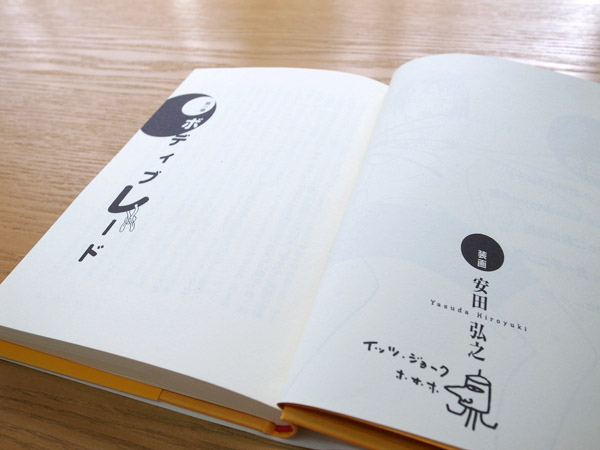 装画
安田弘之
Yasuda Hiroyuki
イッツ・ジョーク
ホ.ホ.ホ.
ボディブレード